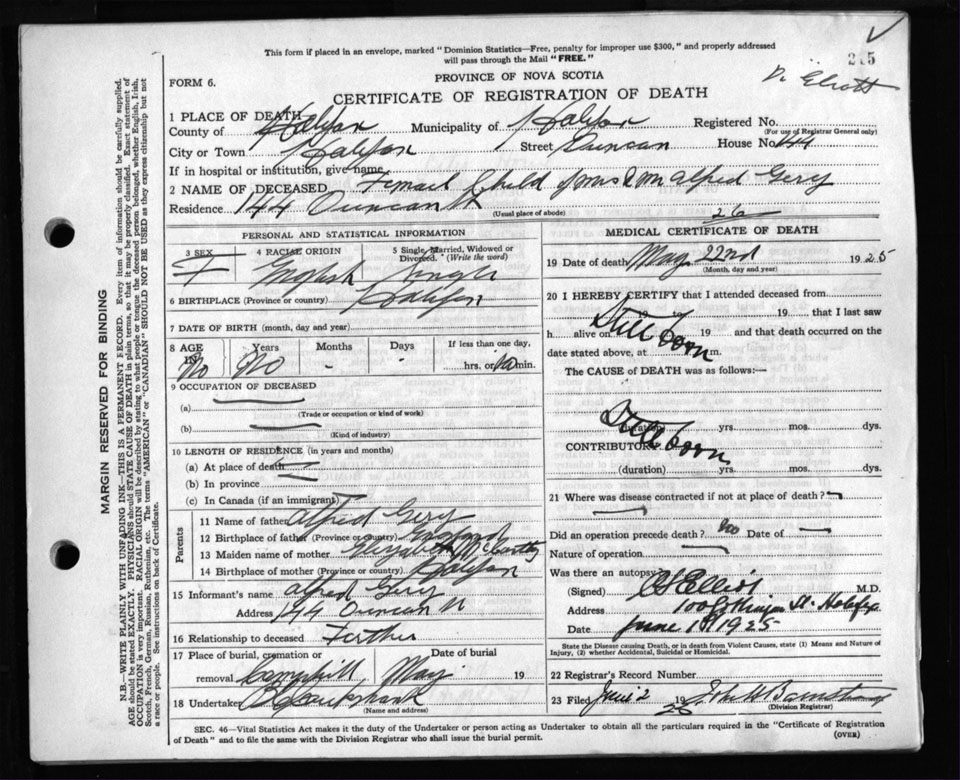 This form if placed in an envelope, marked "Dominion Statistics—Free, penalty for improper use $300," and properly addressed
will pass through the Mail "FREE."
215
FORM 6.
PROVINCE OF NOVA SCOTIA
CERTIFICATE OF REGISTRATION OF DEATH
1 PLACE OF DEATH
County of Halifax Municipality of Halifax Registered No.
(For use of Registrar General only)
City or Town Halifax Street Duncan House No. 144
If in hospital or institution, give name
2 NAME OF DECEASED Child of Mrs & Mr Alfred Gery
Residence 144 Duncan St
(Usual place of abode)
26
PERSONAL AND STATISTICAL INFORMATION
3 SEX 4 RACIAL ORIGIN 5 Single, Married, Widowed or Divorced. (Write the word)
F English Single
6 BIRTHPLACE (Province or country) Halifax
7 DATE OF BIRTH (month, day and year)
8 AGE IN Years Months Days If less than one day,
No No - - hrs. or no min.
9 OCCUPATION OF DECEASED
(a)
(Trade or occupation or kind of work)
(b)
(Kind of industry)
10 LENGTH OF RESIDENCE (in years and months)
(a) At place of death
(b) In province
(c) In Canada (if an immigrant)
Parents
11 Name of father Alfred Gery
12 Birthplace of father (Province or country) England
13 Maiden name of mother Elizabeth McCarthy
14 Birthplace of mother (Province or country) Halifax
15 Informant's name Alfred Gery
Address 144 Duncan St
16 Relationship to deceased Father
17 Place of burial, cremation or removal Date of burial
Camphill May 19
18 Undertaker Cruikshank
(Name and address)
MEDICAL CERTIFICATE OF DEATH
19 Date of death May 22nd 1925
(Month, day and year)
20 I HEREBY CERTIFY that I attended deceased from
19 to 19 that I last saw
h alive on 19 and that death occurred on
Still born
date stated above, at m.
The CAUSE of DEATH was as follows:—
Still born
(duration) yrs. mos. dys.
CONTRIBUTORY
(duration) yrs. mos. dys.
21 Where was disease contracted if not at place of death?
Did an operation precede death? No Date of
Nature of operation
Was there an autopsy?
(Signed) Elliot M.D.
Address 100 St. Halifax
Date June 1st 1925
State the Disease causing Death, or in death from Violent Causes, state (1) Means and Nature of
Injury, (2) whether Accidental, Suicidal or Homicidal.
22 Registrar's Record Number
23 Filed June 2 1925 John
(Division Registrar)
SEC. 46—Vital Statistics Act makes it the duty of the Undertaker or person acting as Undertaker to obtain all the particulars required in the "Certificate of Registration
of Death" and to file the same with the Division Registrar who shall issue the burial permit.
(OVER)
MARGIN RESERVED FOR BINDING
N.B.—WRITE PLAINLY WITH UNFADING INK—THIS IS A PERMANENT RECORD. Every item of information should be carefully supplied.
AGE should be stated EXACTLY. PHYSICIANS should STATE CAUSE OF DEATH in plain terms, so that it may be properly classified. Exact statement of
OCCUPATION is very important. RACIAL ORIGIN will be described by stating to what people or tongue the deceased person belonged, whether English, Irish,
Scotch, French, German, Russian, Ruthenian, etc. The terms "AMERICAN" or "CANADIAN" SHOULD NOT BE USED as they express citizenship but not
a race or people. See instructions on back of Certificate.